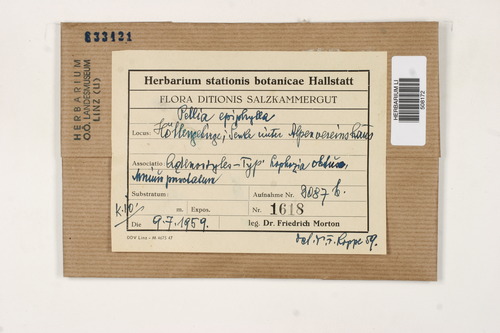 833121
HERBARIUM
O.Ö. LANDESMUSEUM
LINZ (LI)
HERBARIUM LI
508172
Herbarium stationis botanicae Hallstatt
FLORA DITIONIS SALZKAMMERGUT
Pellia epiphylla
Locus: Höllengebirge, Senke unter Alpenvereinshaus
Associatio: Adenostyles-Typ. Lophozia obtusa,
Mnium punctatum
Substratum: Aufnahme Nr. 8087 b.
m. Expos. Nr. 1618
Die 9.7.1959. leg. Dr. Friedrich Morton
DOV Linz
det. Dr. F. Koppe 59.